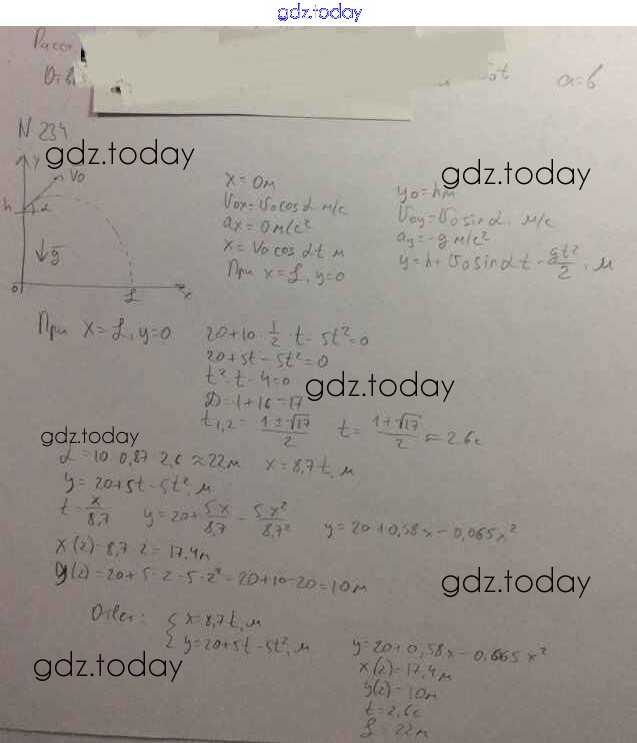 gdz.today
Расс
От
t a=b
N 234
gdz.today
gdz.today
y V₀
h α
↓g̅
0 L x
x=0м
V₀ₓ=υ₀cosα м/с
aₓ=0м/с²
x=V₀cosαt м
При x=L, y=0
y₀=hм
υ₀y=υ₀sinα. м/с
ay=-g м/с²
y=h+υ₀sinαt-gt²/2, м
При x=L, y=0 20+10·1/2·t-5t²=0
20+5t-5t²=0
t²-t-4=0
gdz.today
D=1+16=17
t₁,₂=(1±√17)/2 t=(1+√17)/2≈2.6с
gdz.today
L=10·0,87·2,6≈22м x=8,7t, м
y=20+5t-5t², м
t=x/8,7 y=20+5·x/8,7-5·x²/8,7² y=20+0,58x-0,065x²
x(2)=8,7·2=17,4м
y(2)=20+5·2-5·2²=20+10-20=10м
gdz.today
Ответ: { x=8,7t, м
y=20+5t-5t², м
y=20+0,58x-0,065x²
gdz.today
x(2)=17,4м
y(2)=10м
t=2,6с
L=22м